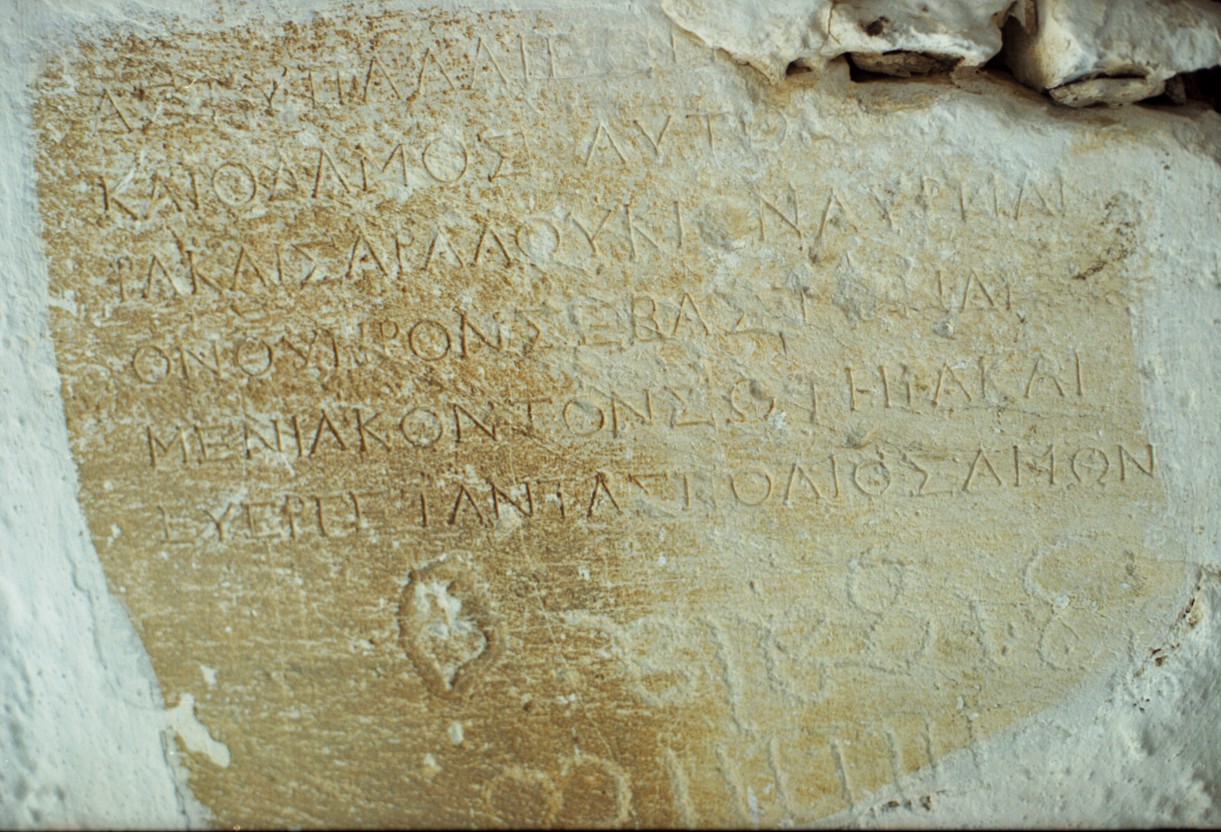 ΑΣΤΥΠΑΛΑΙΕ
ΚΑΙΟΔΑΜΟΣ ΑΥΤΟ
ΡΑΚΑΙΣΑΡΑΛΟΥΚΙΟΝΑΥΡΗΛΙ
ΟΝΟΥΗΡΟΝΣΕΒΑΣΤΟΝΑΡ
ΜΕΝΙΑΚΟΝΤΟΝΣΩΤΗΡΑΚΑΙ
ΕΥΕΡΓΕΤΑΝΤΑΣΠΟΛΙΟΣΑΜΩΝ